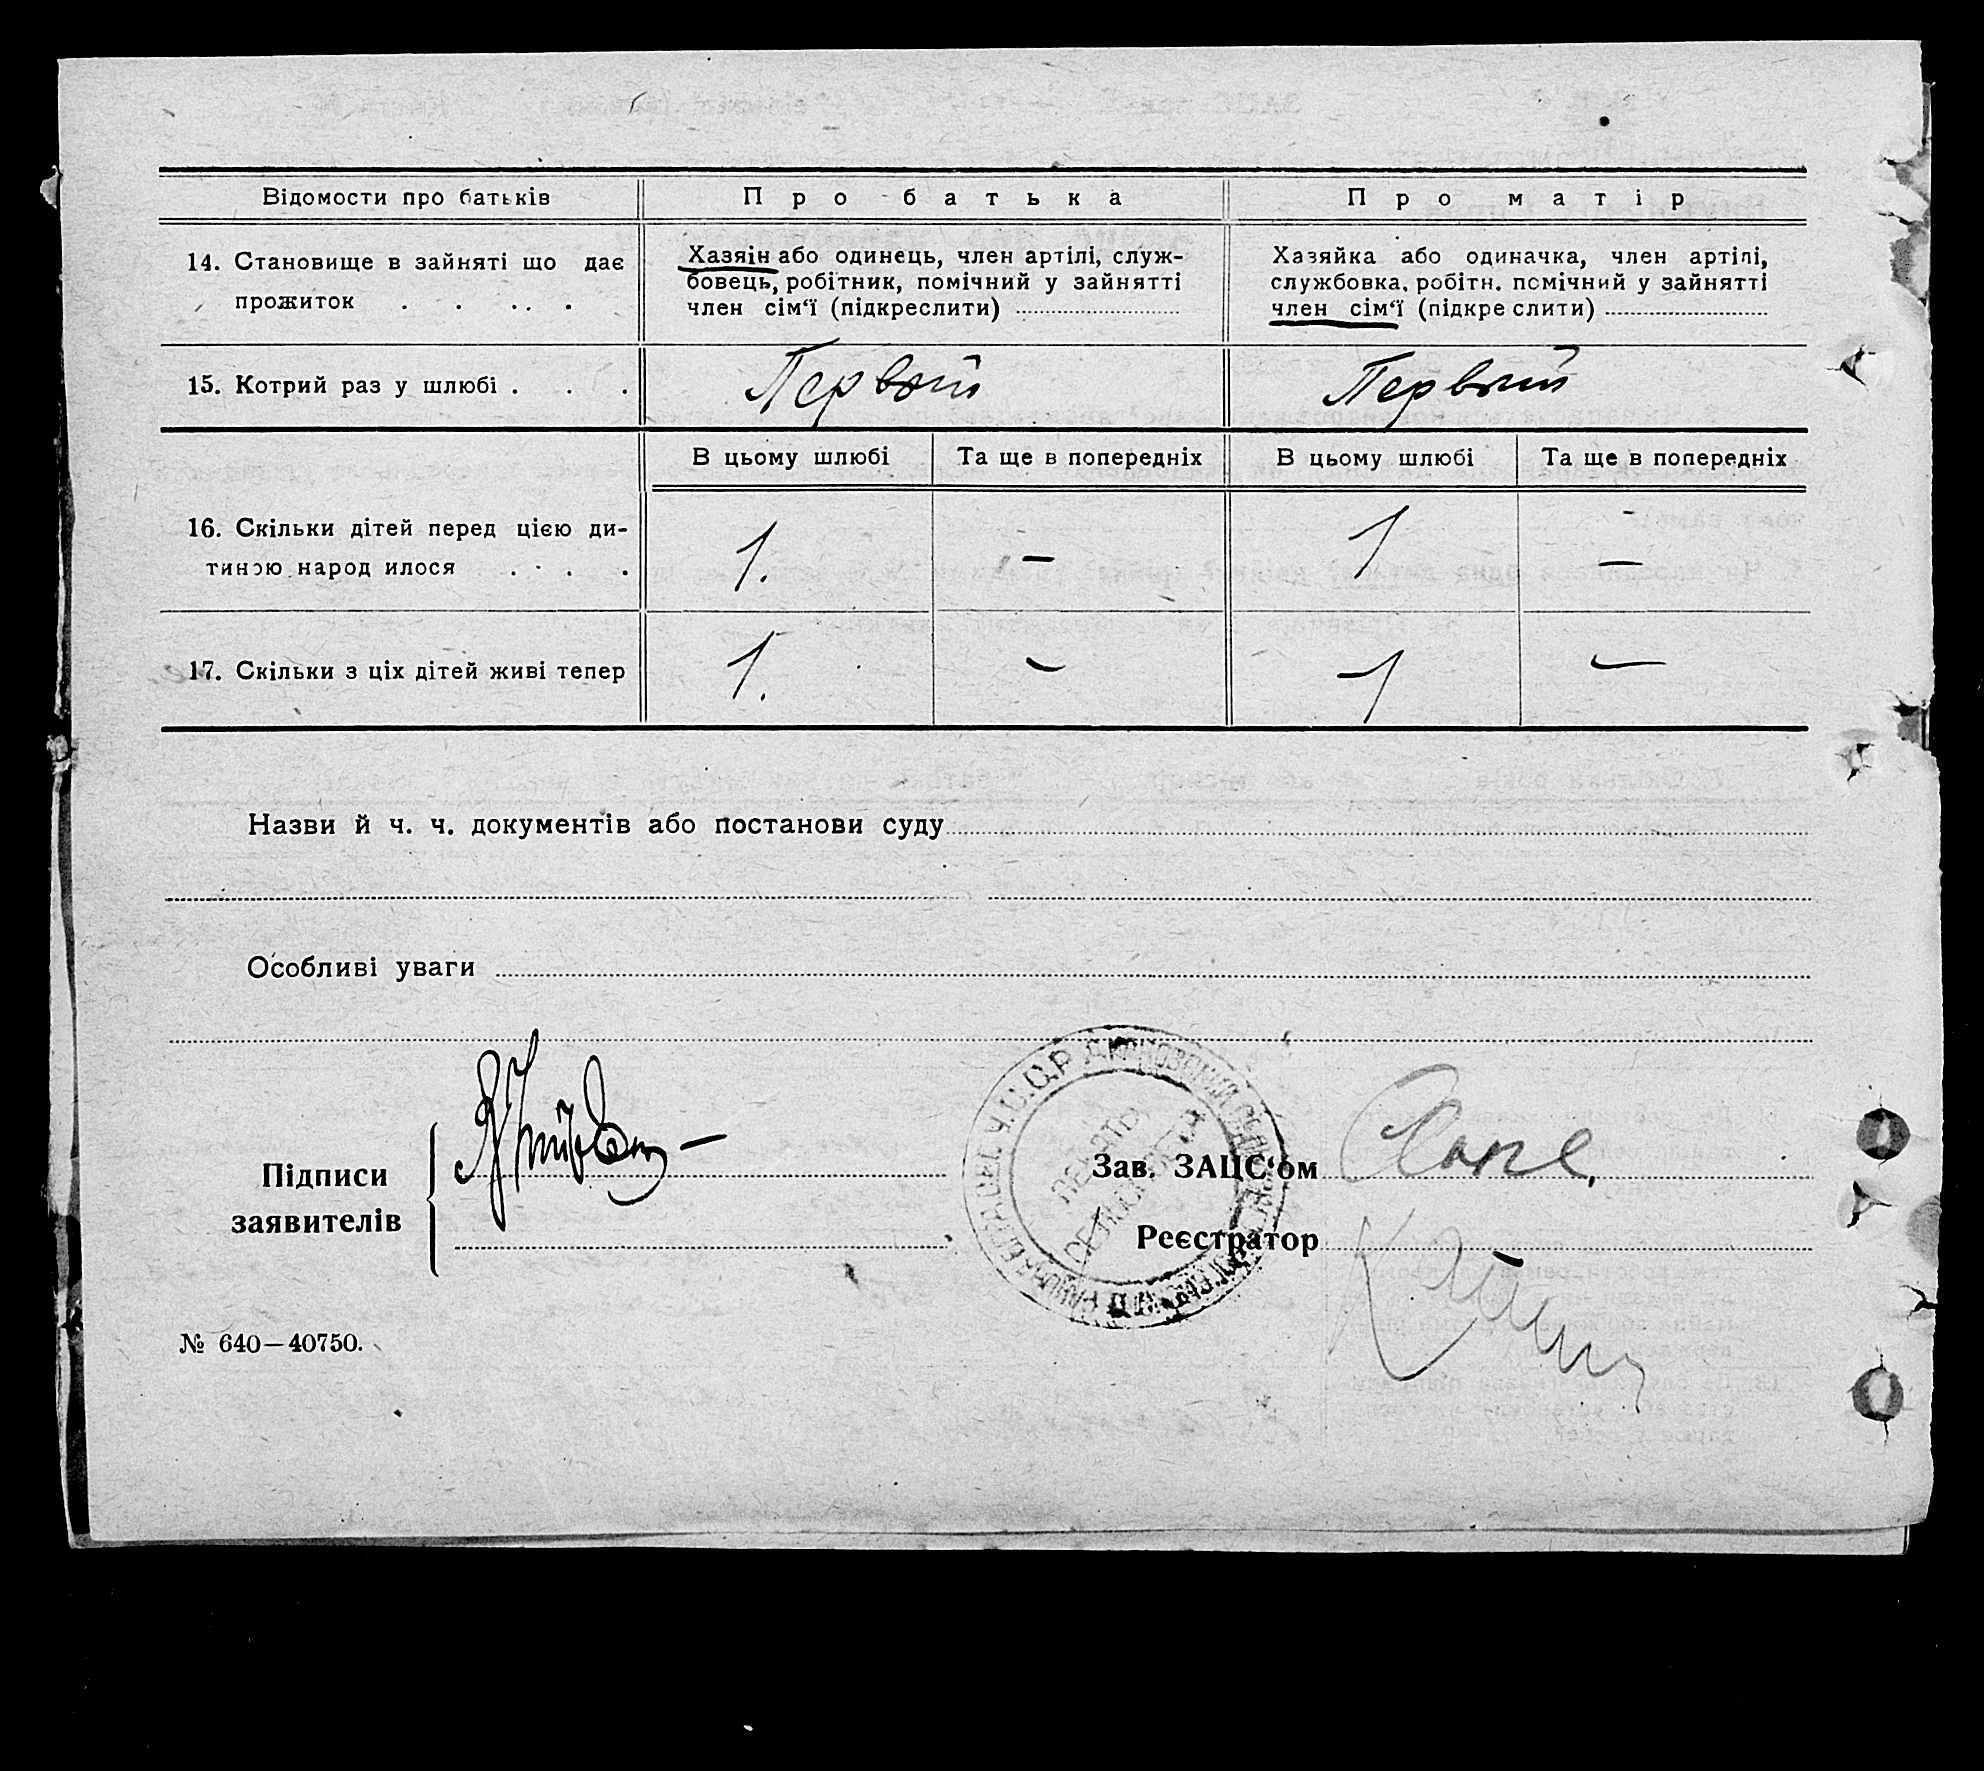 Відомости про батьків
Про батька
Про матір
14. Становище в зайняті що дає
прожиток . . . . .
Хазяїн або одинець, член артілі, служ-
бовець, робітник, помічний у зайнятті
член сім‘ї (підкреслити)
Хазяйка або одиначка, член артілі,
службовка, робітн. помічний у зайнятті
член сім‘ї (підкре слити)
15. Котрий раз у шлюбі . . .
Первый
Первый
В цьому шлюбі
Та ще в попередніх
В цьому шлюбі
Та ще в попередніх
16. Скільки дітей перед цією ди-
тиною народ илося . . . .
1.
—
1
—
17. Скільки з ціх дітей живі тепер
1.
—
1
—
Назви й ч. ч. документів або постанови суду
Особливі уваги
Підписи
заявителів
Зав. ЗАЦС‘ом
Реєстратор
У.С.С.Р.
ПЕЧАТЬ
СЕЛЬСОВЕТА
№ 640—40750.